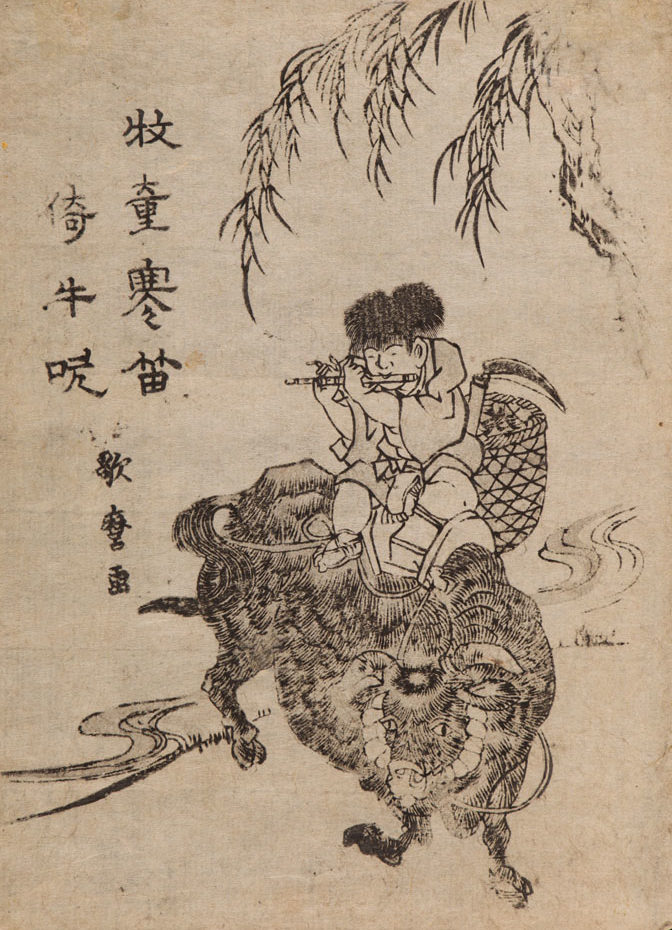 牧童寒笛
倚牛吹
歌麿画